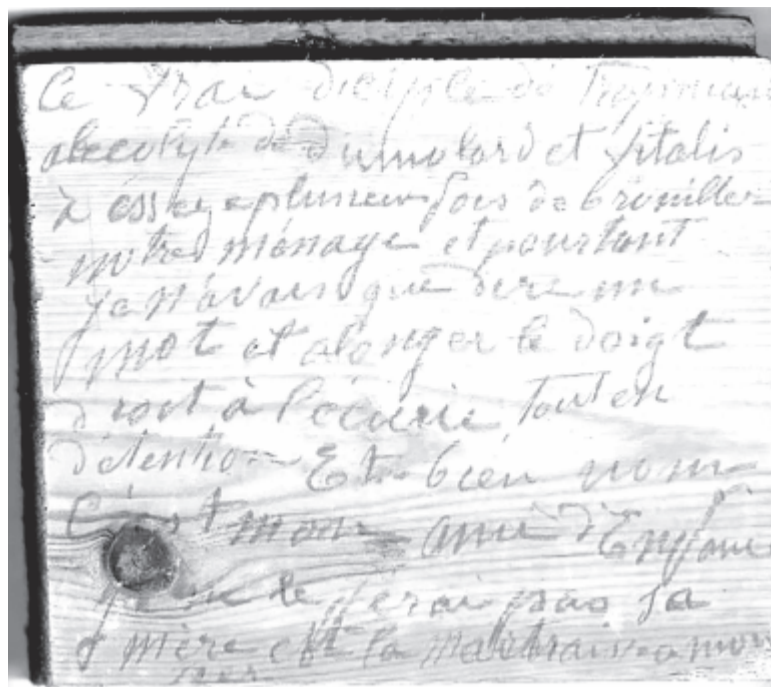 Ce Vrai diciple de
accolyte de dumolard et fitalis
à ésseye plusieur fois de brouiller
notre ménage et pourtant
je n'avais que dire un
mot et alonger le doigt
droit à l'écurie, tout en
détention Et bien nom
C'est mon ami d'Enfanc
je ne le ferai pas sa
mère est la